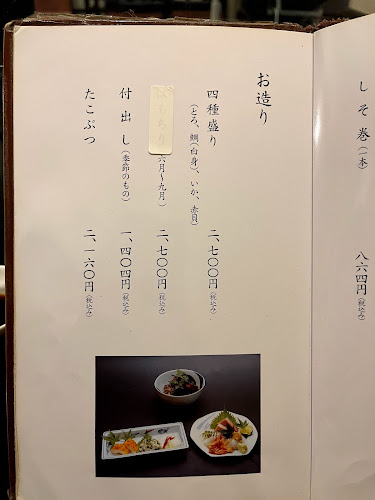 しそ巻(一本) 八六四円(税込み)
お造り
四種盛り 二、七〇〇円(税込み)
(とろ、鯛(白身)、いか、赤貝)
六月〜九月) 二、七〇〇円(税込み)
付出し(季節のもの) 一、四〇四円(税込み)
たこぶつ 二、一六〇円(税込み)